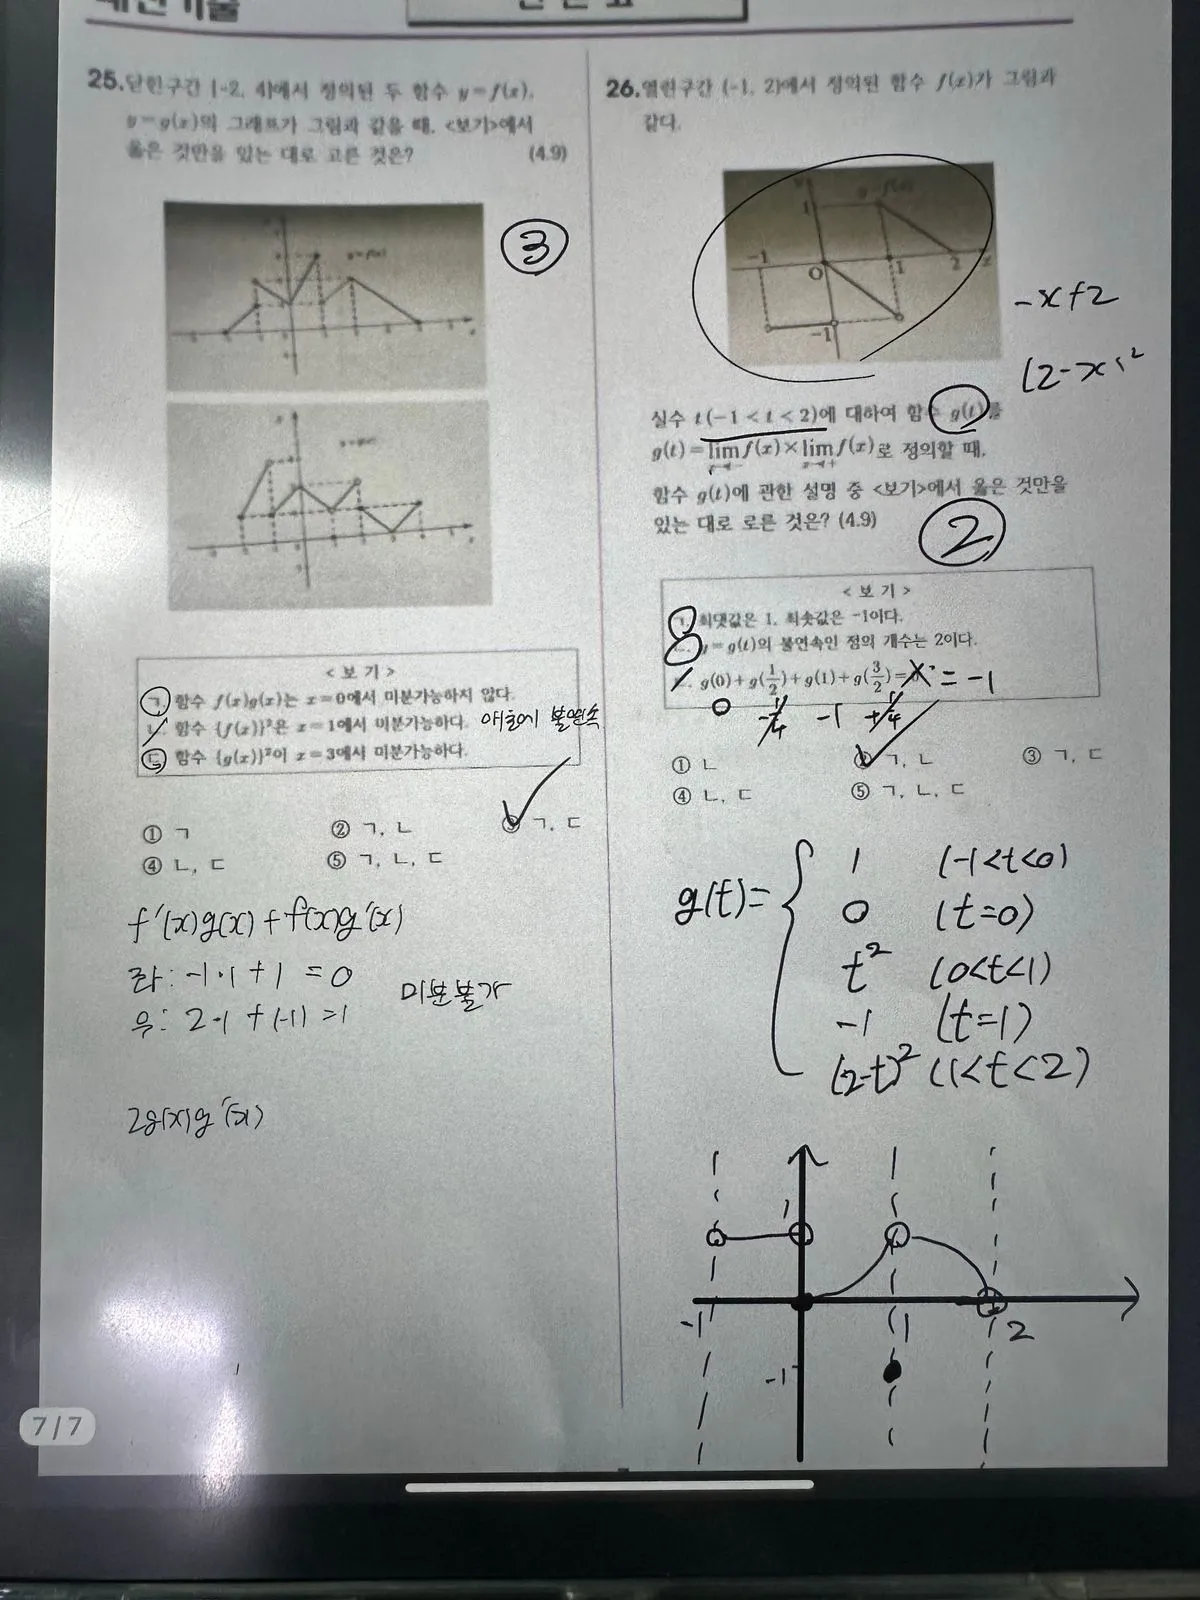 25. 닫힌구간 [-2, 4]에서 정의된 두 함수 y=f(x),
y=g(x)의 그래프가 그림과 같을 때, <보기>에서
옳은 것만을 있는 대로 고른 것은? (4.9)
③
y=f(x)
y=g(x)
<보기>
ㄱ. 함수 f(x)g(x)는 x=0에서 미분가능하지 않다.
ㄴ. 함수 {f(x)}²은 x=1에서 미분가능하다. 애초에 불연속
ㄷ. 함수 {g(x)}²이 x=3에서 미분가능하다.
① ㄱ ② ㄱ, ㄴ ③ ㄱ, ㄷ
④ ㄴ, ㄷ ⑤ ㄱ, ㄴ, ㄷ
f'(x)g(x)+f(x)g'(x)
좌: -1·1+1=0
우: 2·1+(-1)=1
미분불가
2g(x)g'(x)
26. 열린구간 (-1, 2)에서 정의된 함수 f(x)가 그림과
같다.
y=f(x)
1
-1 O 1 2 x
-1
-x+2
(2-x)²
실수 t(-1<t<2)에 대하여 함수 g(t)를
g(t)=lim f(x)×lim f(x)로 정의할 때,
함수 g(t)에 관한 설명 중 <보기>에서 옳은 것만을
있는 대로 로른 것은? (4.9)
②
<보기>
ㄱ. 최댓값은 1, 최솟값은 -1이다.
y=g(t)의 불연속인 점의 개수는 2이다.
g(0)+g(1/2)+g(1)+g(3/2)= = -1
0 -1
① ㄴ ② ㄱ, ㄴ ③ ㄱ, ㄷ
④ ㄴ, ㄷ ⑤ ㄱ, ㄴ, ㄷ
g(t)=
1 (-1<t<0)
0 (t=0)
t² (0<t<1)
-1 (t=1)
(2-t)² (1<t<2)
1
-1 1 2
-1
7/7